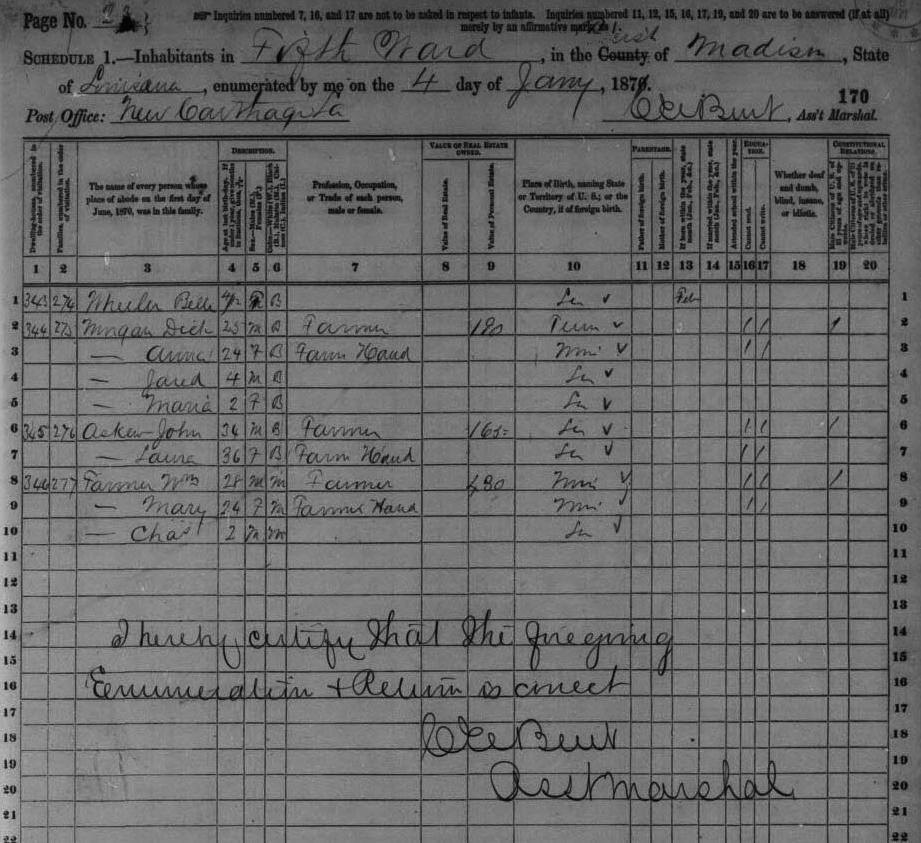 Page No. 23
Inquiries numbered 7, 16, and 17 are not to be asked in respect to infants. Inquiries numbered 11, 12, 15, 16, 17, 19, and 20 are to be answered (if at all)
merely by an affirmative mark, as /.
SCHEDULE 1.—Inhabitants in Fifth Ward, in the County of Madison, State
of Louisiana, enumerated by me on the 4 day of Jany, 1870.
170
Post Office: New Carthage La
Ass't Marshal.
DESCRIPTION. VALUE OF REAL ESTATE OWNED. PARENTAGE. EDUCATION. CONSTITUTIONAL RELATIONS.
Dwelling-houses, numbered in the order of visitation. Families, numbered in the order of visitation. The name of every person whose place of abode on the first day of June, 1870, was in this family. Profession, Occupation, or Trade of each person, male or female. Value of Real Estate. Value of Personal Estate. Place of Birth, naming State or Territory of U. S.; or the Country, if of foreign birth. Father of foreign birth. Mother of foreign birth. Attended school within the year. Cannot read. Cannot write. Whether deaf and dumb, blind, insane, or idiotic.
1 2 3 4 5 6 7 8 9 10 11 12 13 14 15 16 17 18 19 20
1 343 274 Wheeler Belle F B La Feb 1
2 344 275 Morgan Dick 25 M B Farmer 190 Tenn / / / 2
3 — Anna 24 F B Farm Hand Missi / / 3
4 — Jared 4 M B La 4
5 — Maria 2 F B La 5
6 345 276 Askew John 34 M B Farmer 165 La / / / 6
7 — Laura 36 F B Farm Hand La / / 7
8 346 277 Farmer Wm 28 M M Farmer 480 Missi / / / 8
9 — Mary 24 F M Farmer Hand Missi / / 9
10 — Chas 2 M M La 10
11 11
12 12
13 13
14 I hereby certify that the foregoing 14
15 15
16 Enumeration & Return is correct 16
17 17
18 18
19 19
20 Asst Marshal 20
21 21
22 22